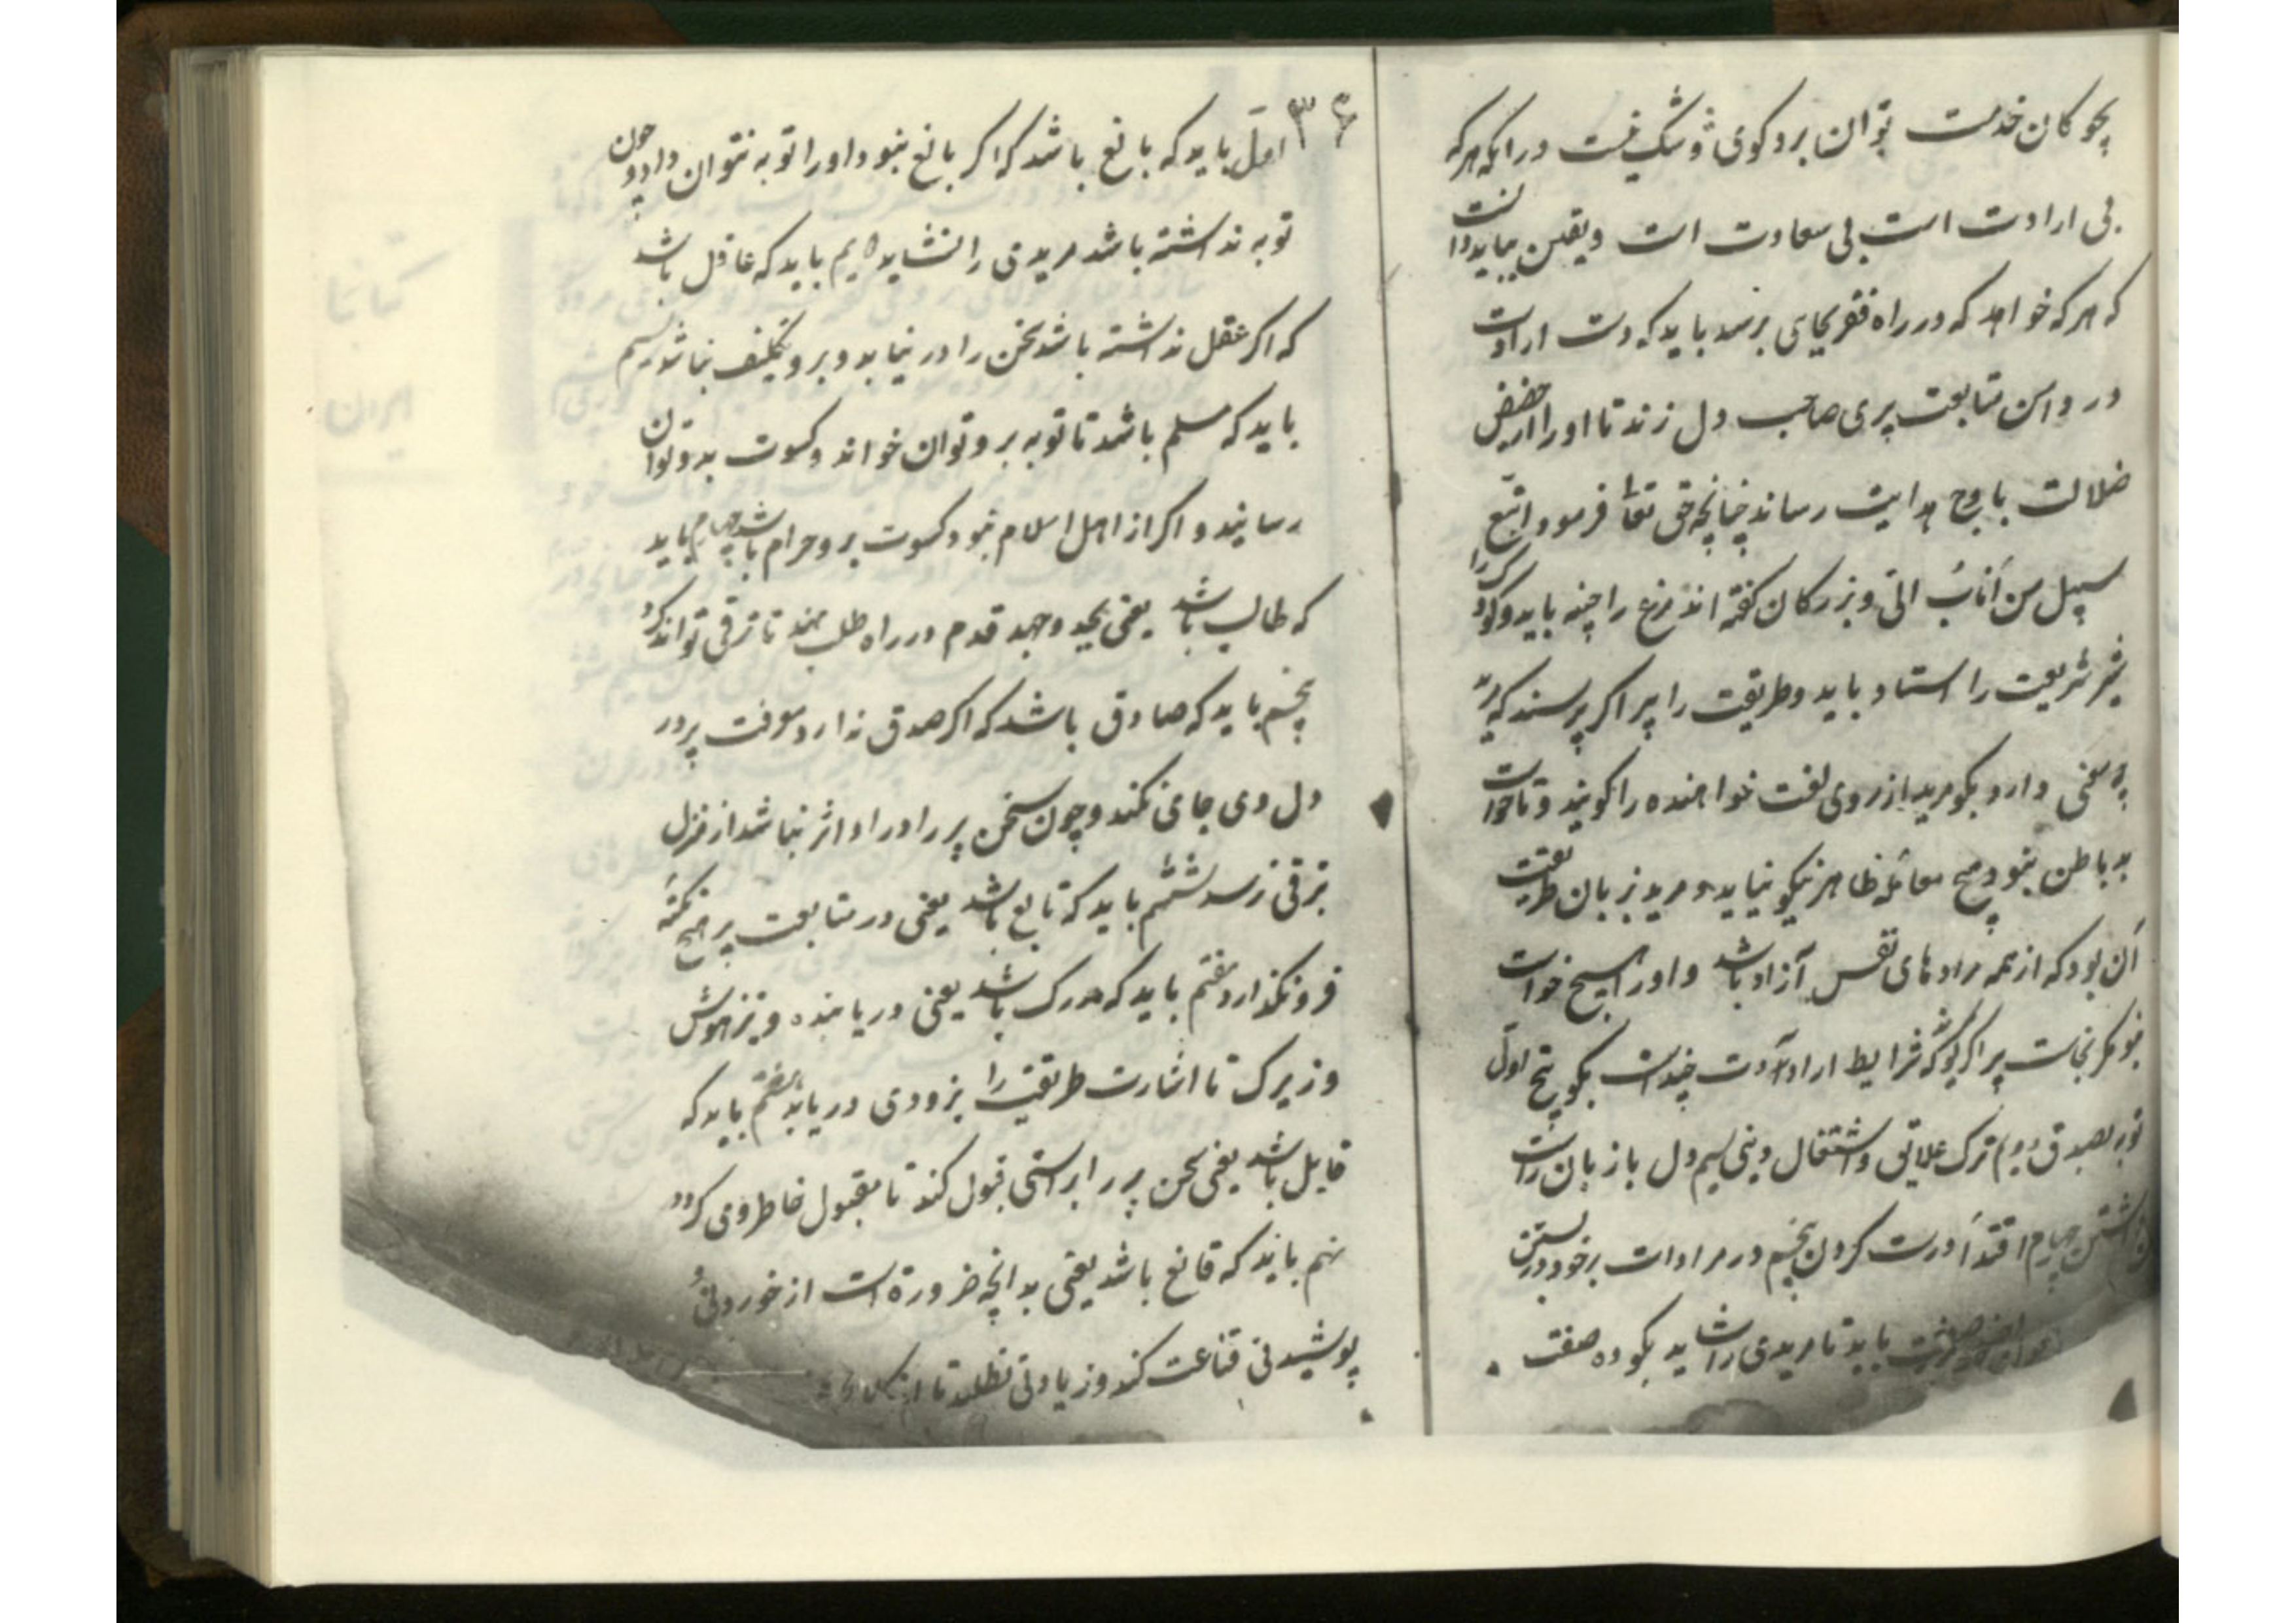 بچوکان خدمت توان برد کوی و شک نیست در انکه هرکه
بی ارادت است بی سعادت است و یقین بباید دانست
که هر که خواهد که در راه فقر بجای برسد باید که دست ارادت
در دامن متابعت پری صاحب دل زند تا او را از حضیض
ضلالت باوج هدایت رساند چنانچه حق تعا فرمود و اتبع
سبیل من اناب الی و بزرکان کفته اند مرغ را چینه باید و کودک را
شیر شریعت را استاد باید و طریقت را پیر اکر پرسند که مرید
چه معنی دارد بکو مرید از روی لغت خواهنده را کویند و تا خواست
به باطن نبود هیچ معامله ظاهر نیکو نیاید و مرید بزبان طریقت
آن بود که از همه مرادهای نفس آزاد باشد و او را هیچ خواست
نبود مکر نجات پیر اکر کویند که شرایط ارادت چندست بکو پنج اول
توبه بصدق دویم ترک علایق و اشتغال دینی سیم دل با زبان راست
داشتن چهارم اقتدا درست کردن پنجم در مرادات بر خود در بستن
صفت باید تا مریدی را شاید بکو ده صفت
۳۶
اول باید که بالغ باشد که اکر بالغ نبود او را توبه نتوان داد و چون
توبه نداشته باشد مریدی را نشاید دویم باید که عاقل باشد
که اکر عقل نداشته باشد سخن را در نیابد و برو تکلیف نباشد سیم
باید که مسلم باشد تا توبه برو توان خواند و کسوت بدو توان
رسانید و اکر از اهل اسلام نبود کسوت برو حرام باشد چهارم باید
که طالب باشد یعنی بجد و جهد قدم در راه طلب نهد تا ترقی تواند کرد
پنجم باید که صادق باشد که اکر صدق ندارد معرفت پیر در
دل وی جای نکند و چون سخن پیر را در او اثر نباشد از منزل
ترقی نرسد ششم باید که تابع باشد یعنی در متابعت پیر هیچ نکته
فرو نکذارد هفتم باید که مدرک باشد یعنی دریابنده و تیزهوش
و زیرک تا اشارت طریقت را بزودی دریابد هشتم باید که
قایل باشد یعنی سخن پیر را براستی قبول کند تا مقبول خاطر وی کردد
نهم باید که قانع باشد یعنی بدانچه ضرورة است از خوردنی و
پوشیدنی قناعت کند و زیادتی نطلبد تا از